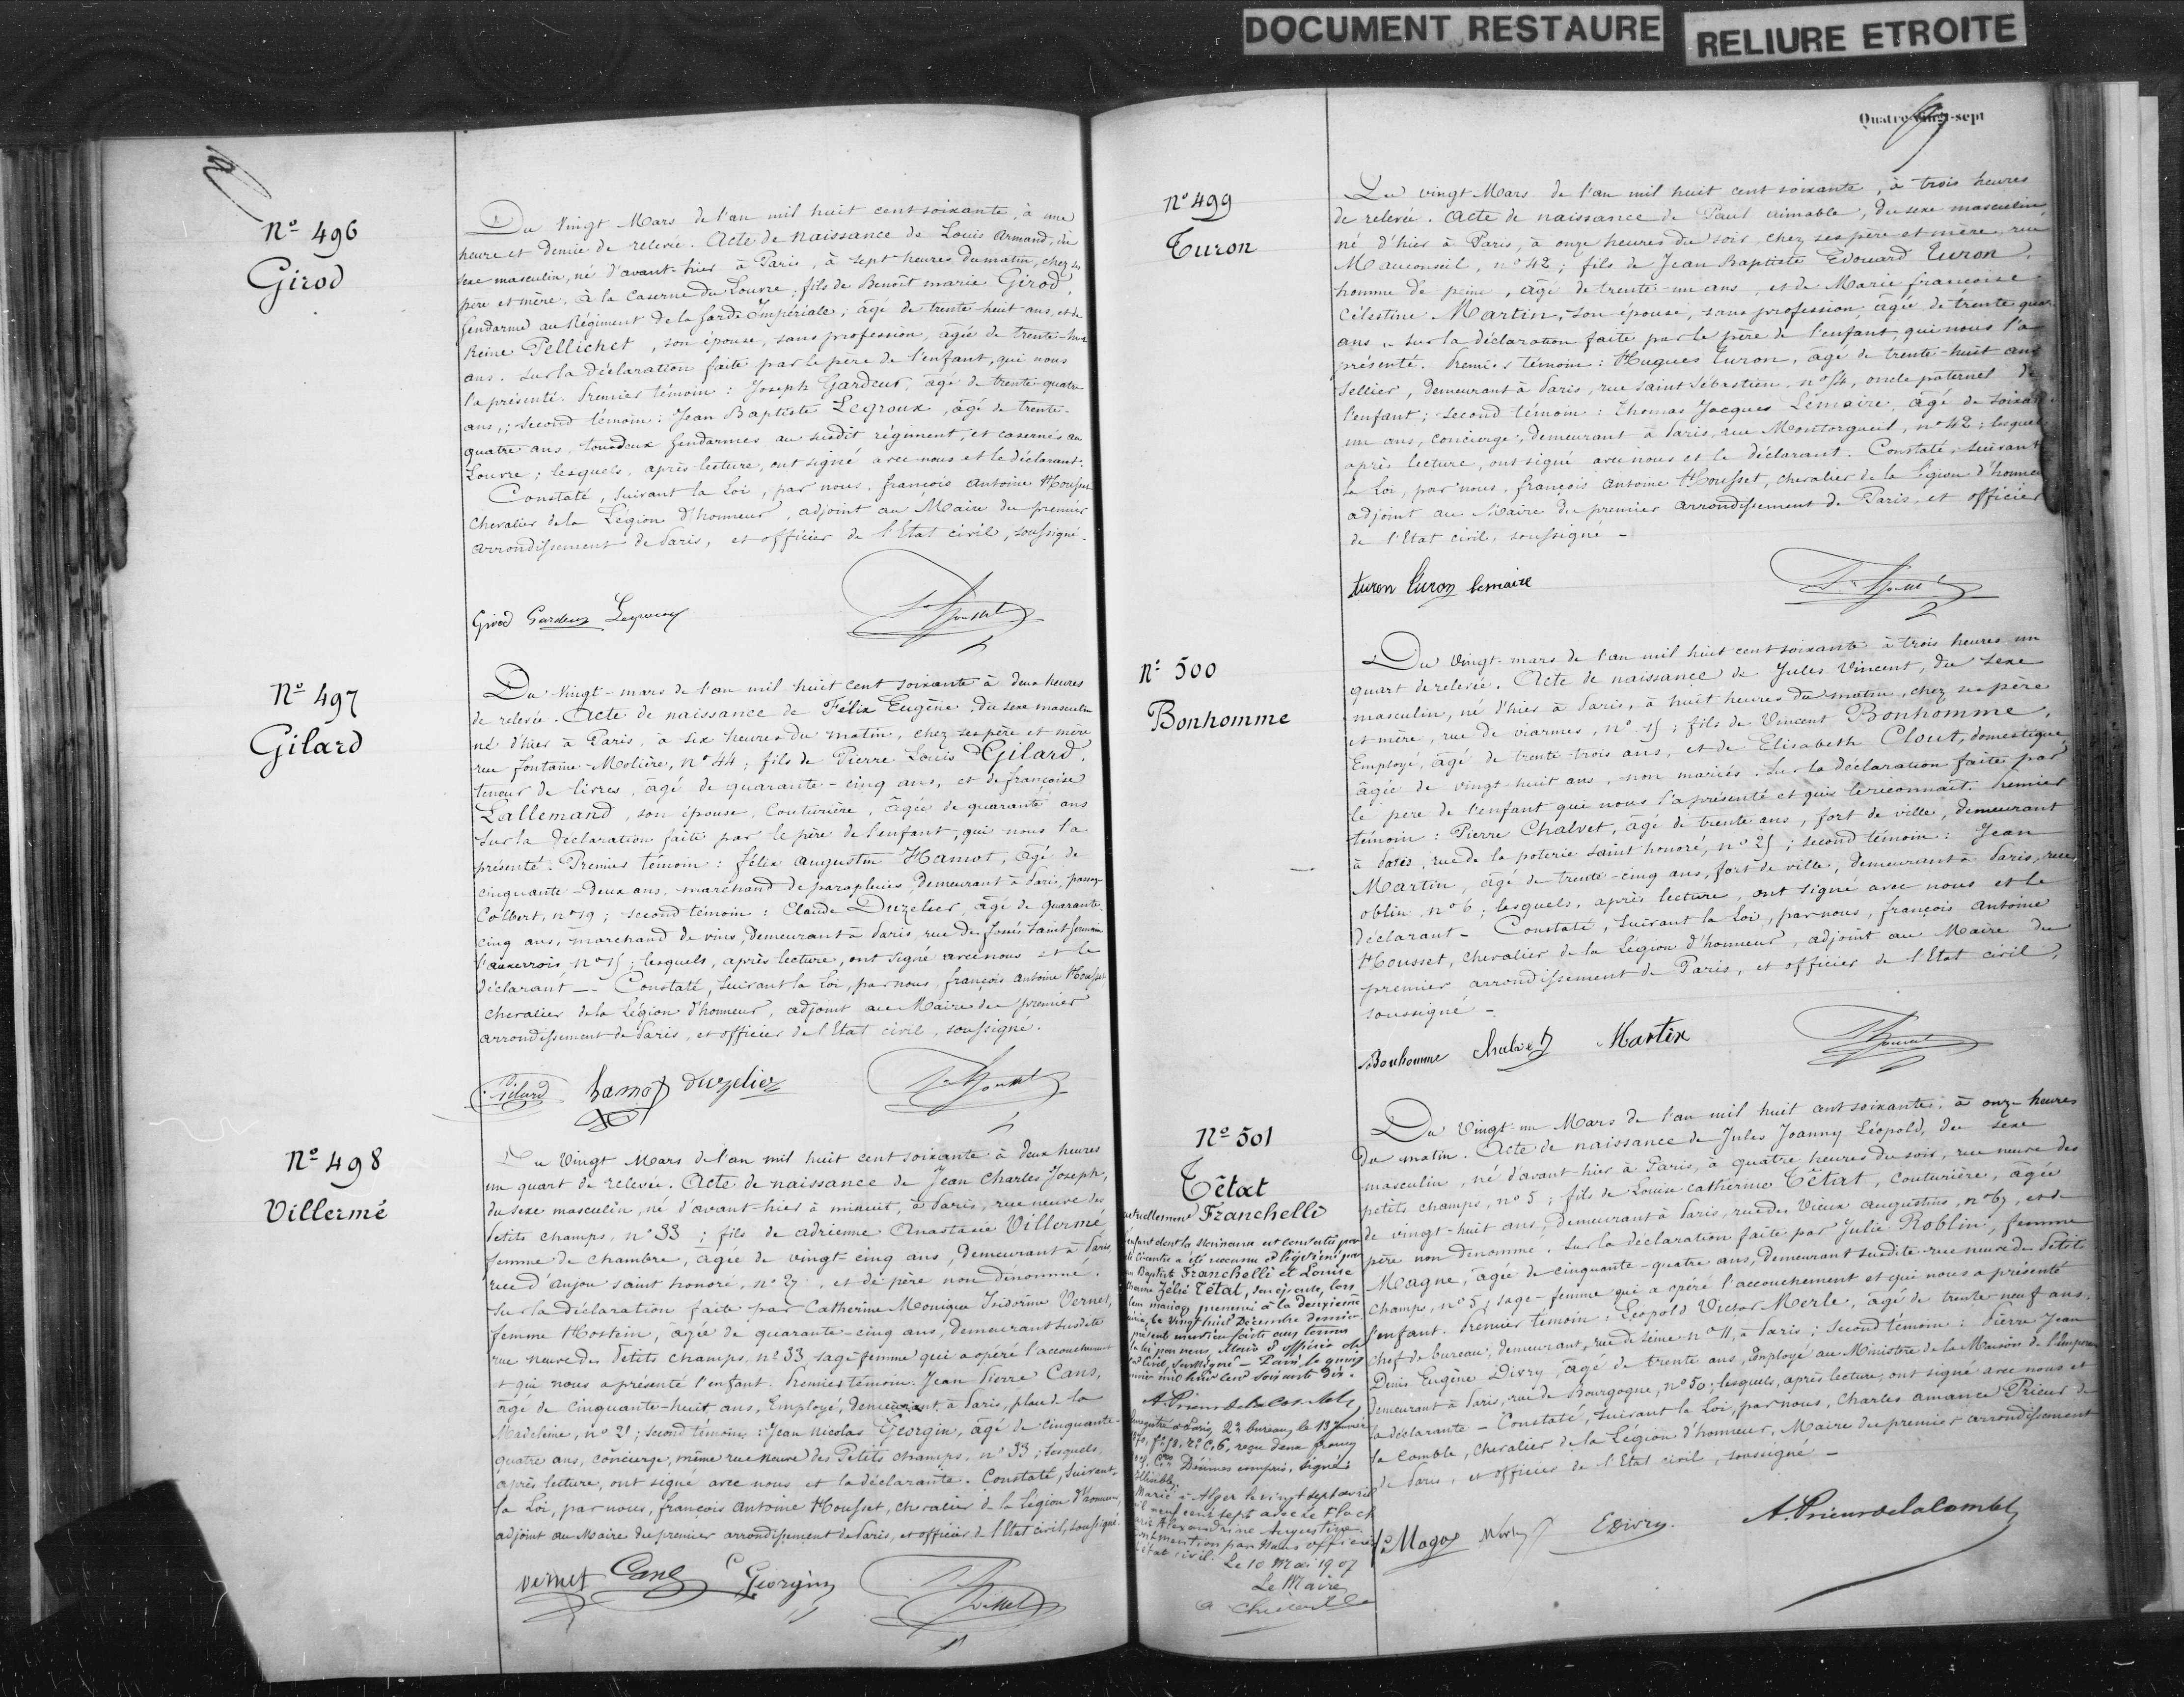 DOCUMENT RESTAURE
RELIURE ETROITE
Nº 496
Girod
Du Vingt Mars de l'an mil huit cent soixante, à une
heure et demie de relevée. Acte de naissance de Louis Armand, du
sexe masculin, né d'avant-hier à Paris, à sept heures du matin, chez ses
père et mère, à la Caserne du Louvre; fils de Benoît marie Girod,
Gendarme au Régiment de la Garde Impériale, âgé de trente huit ans, et de
Reine Pellichet, son épouse, sans profession, âgée de trente-huit
ans. Sur la déclaration faite par le père de l'enfant, qui nous
l'a présenté. Premier témoin: Joseph Gardeur, âgé de trente-quatre
ans,; Second témoin: Jean Baptiste Legroux, âgé de trente-
quatre ans, tous deux Gendarmes au susdit régiment, et casernés au
Louvre; lesquels, après lecture, ont signé avec nous et le déclarant.
Constaté, suivant la Loi, par nous, françois antoine Housset
chevalier de la Légion d'honneur, adjoint au Maire du premier
arrondissement de Paris, et officier de l'Etat civil, soussigné.
Girod Gardeur Legroux
Nº 497
Gilard
Du Vingt-mars de l'an mil huit cent soixante à deux heures
de relevée. Acte de naissance de Félix Eugène du sexe masculin
né d'hier à Paris, à six heures du matin, chez ses père et mère
rue fontaine-Molière, nº 44; fils de Pierre Louis Gilard,
teneur de livres, âgé de quarante-cinq ans, et de françoise
Lallemand, son épouse, Couturière, âgée de quarante ans
Sur la déclaration faite par le père de l'enfant, qui nous l'a
présenté. Premier témoin: félix augustin Hamot, âgé de
cinquante-deux ans, marchand de parapluies, demeurant à Paris, passage
Colbert, nº 19; second témoin: Claude Duzelier, âgé de quarante-
cinq ans, marchand de vins, demeurant à Paris, rue des fossés saint germain
l'auxerrois nº 15; lesquels, après lecture, ont signé avec nous et le
déclarant -- Constaté, suivant la Loi, par nous, françois antoine Housset
chevalier de la Légion d'honneur, adjoint au Maire du premier
arrondissement de Paris, et officier de l'Etat civil, soussigné.
Gilard hamot duzelier
Nº 498
Villermé
Du Vingt Mars de l'an mil huit cent soixante à deux heures
un quart de relevée. Acte de naissance de Jean Charles Joseph,
du sexe masculin, né d'avant-hier à minuit, à Paris, rue neuve des
Petits champs, nº 33; fils de adrienne Anastasie Villermé,
femme de chambre, âgée de vingt-cinq ans, demeurant à Paris,
rue d'anjou saint honoré, nº 27, et de père non dénommé.
Sur la déclaration faite par Catherine Monique Isidorine Vernet,
femme Hostein, âgée de quarante-cinq ans, demeurant susdite
rue neuve des Petits champs, nº 33 sage femme qui a opéré l'accouchement
et qui nous a présenté l'enfant. Premier témoin: Jean Pierre Cans,
âgé de cinquante-huit ans, Employé, demeurant à Paris, place de la
Madeleine, nº 21; second témoin: Jean Nicolas Georgin, âgé de cinquante-
quatre ans, concierge, même rue neuve des Petits champs, nº 33; lesquels
après lecture, ont signé avec nous et la déclarante. Constaté, suivant
la Loi, par nous, françois antoine Housset, chevalier de la Légion d'honneur,
adjoint au Maire du premier arrondissement de Paris, et officier de l'Etat civil, soussigné.
Vernet Cans Georgin
Quatre-vingt-sept
Nº 499
Turon
Du vingt Mars de l'an mil huit cent soixante, à trois heures
de relevée. Acte de naissance de Paul aimable, du sexe masculin
né d'hier à Paris, à onze heures du soir, chez ses père et mère, rue
Mauconseil, nº 42; fils de Jean Baptiste Edouard Turon,
homme de peine, âgé de trente-un ans, et de Marie françoise
Célestine Martin, son épouse, sans profession, âgée de trente quatre
ans. Sur la déclaration faite par le père de l'enfant, qui nous l'a
présenté. Premier témoin: Hugues Turon, âgé de trente-huit ans
Sellier, demeurant à Paris, rue saint Sébastien, nº 54, oncle paternel de
l'enfant; second témoin: Thomas Jacques Lemaire, âgé de soixante
un ans, concierge, demeurant à Paris, rue Montorgueil, nº 42; lesquels
après lecture, ont signé avec nous et le déclarant. Constaté, suivant
la Loi, par nous, françois antoine Housset, chevalier de la légion d'honneur
adjoint au Maire du premier arrondissement de Paris, et officier
de l'Etat civil, soussigné -
turon turon lemaire
Nº 500
Bonhomme
Du Vingt-mars de l'an mil huit cent soixante à trois heures un
quart de relevée. Acte de naissance de Jules Vincent, du sexe
masculin, né d'hier à Paris, à huit heures du matin, chez ses père
et mère, rue de viarmes, nº 15; fils de Vincent Bonhomme,
Employé, âgé de trente-trois ans, et de Elisabeth Clout, domestique,
âgée de vingt-huit ans, non mariés. Sur la déclaration faite par
le père de l'enfant qui nous l'a présenté et qui le reconnait. Premier
témoin: Pierre Chalvet, âgé de trente ans, fort de ville, demeurant
à Paris, rue de la poterie saint honoré, nº 25; second témoin: Jean
Martin, âgé de trente-cinq ans, fort de ville, demeurant à Paris, rue
oblin nº 6; lesquels, après lecture, ont signé avec nous et le
déclarant - Constaté, suivant la Loi, par nous, françois antoine
Housset, chevalier de la Légion d'honneur, adjoint au Maire du
premier arrondissement de Paris, et officier de l'Etat civil,
soussigné -
Bonhomme Chalvet Martin
Nº 501
Têtat
actuellement Franchelli
Franchelli et Louise
Zélie Tétat, son épouse, lors
mariage à la deuxième
le Vingt huit Décembre dernier
par nous, Maire & officier de
civil, soussigné - Paris, le quinze
mil huit cent soixante dix.
A. Prieur de la Comble
Enregistré à Paris, 2e bureau, le 13 Janvier
reçu deux francs
Décimes compris, signé:
Illisible
Marié à Alger le vingt sept avril
mil neuf cent sept avec
Alexandrine Augustine
mention par Nous officier
l'état civil. Le 10 Mai 1907
Le Maire
Du Vingt-un Mars de l'an mil huit cent soixante, à onze heures
du matin. Acte de naissance de Jules Joanny Léopold, du sexe
masculin, né d'avant-hier à Paris, à quatre heures du soir, rue neuve des
petits champs, nº 5; fils de Louise catherine Têtat, couturière, âgée
de vingt-huit ans, demeurant à Paris, rue des Vieux augustins, nº 67, et de
père non dénommé. Sur la déclaration faite par Julie Roblin, femme
Magne, âgée de cinquante-quatre ans, demeurant susdite rue neuve des Petits
Champs, nº 5, sage-femme qui a opéré l'accouchement et qui nous a présenté
l'enfant. Premier témoin: Léopold Victor Merle, âgé de trente-neuf ans,
chef de bureau, demeurant, rue de Seine nº 11, à Paris; second témoin: Pierre Jean
Denis Eugène Divry, âgé de trente ans, Employé au Ministère de la Maison de l'Empereur
demeurant à Paris, rue de Bourgogne, nº 50; lesquels, après lecture, ont signé avec nous et
la déclarante - Constaté, suivant la Loi, par nous, Charles amance Prieur de
la Comble, chevalier de la Légion d'honneur, Maire du premier arrondissement
de Paris, et officier de l'Etat civil, soussigné -
E Divry. A. Prieur de la Comble